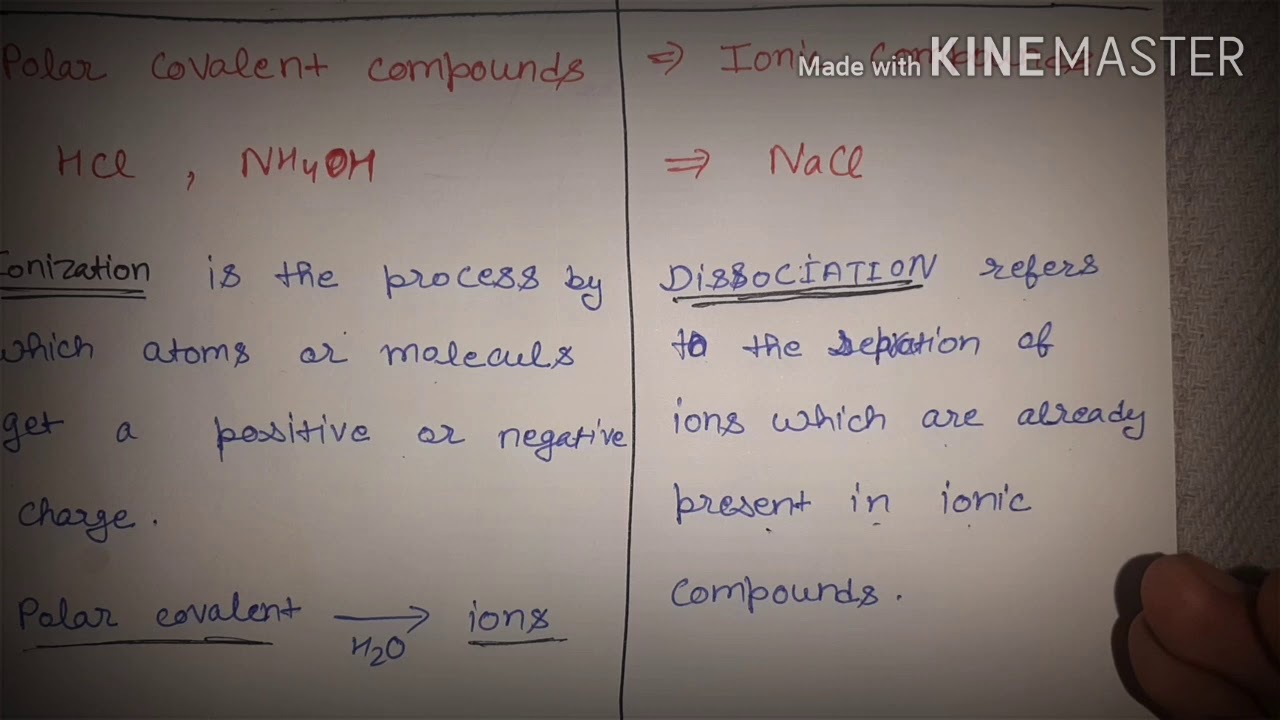 Polar covalent compounds
HCl , NH4OH
Ionization is the process by
which atoms or moleculs
get a positive or negative
charge.
Polar covalent ⟶ ions
H2O
⇒ Ionic Compounds
Made with KINEMASTER
⇒ NaCl
DISSOCIATION refers
to the sepration of
ions which are already
present in ionic
compounds.